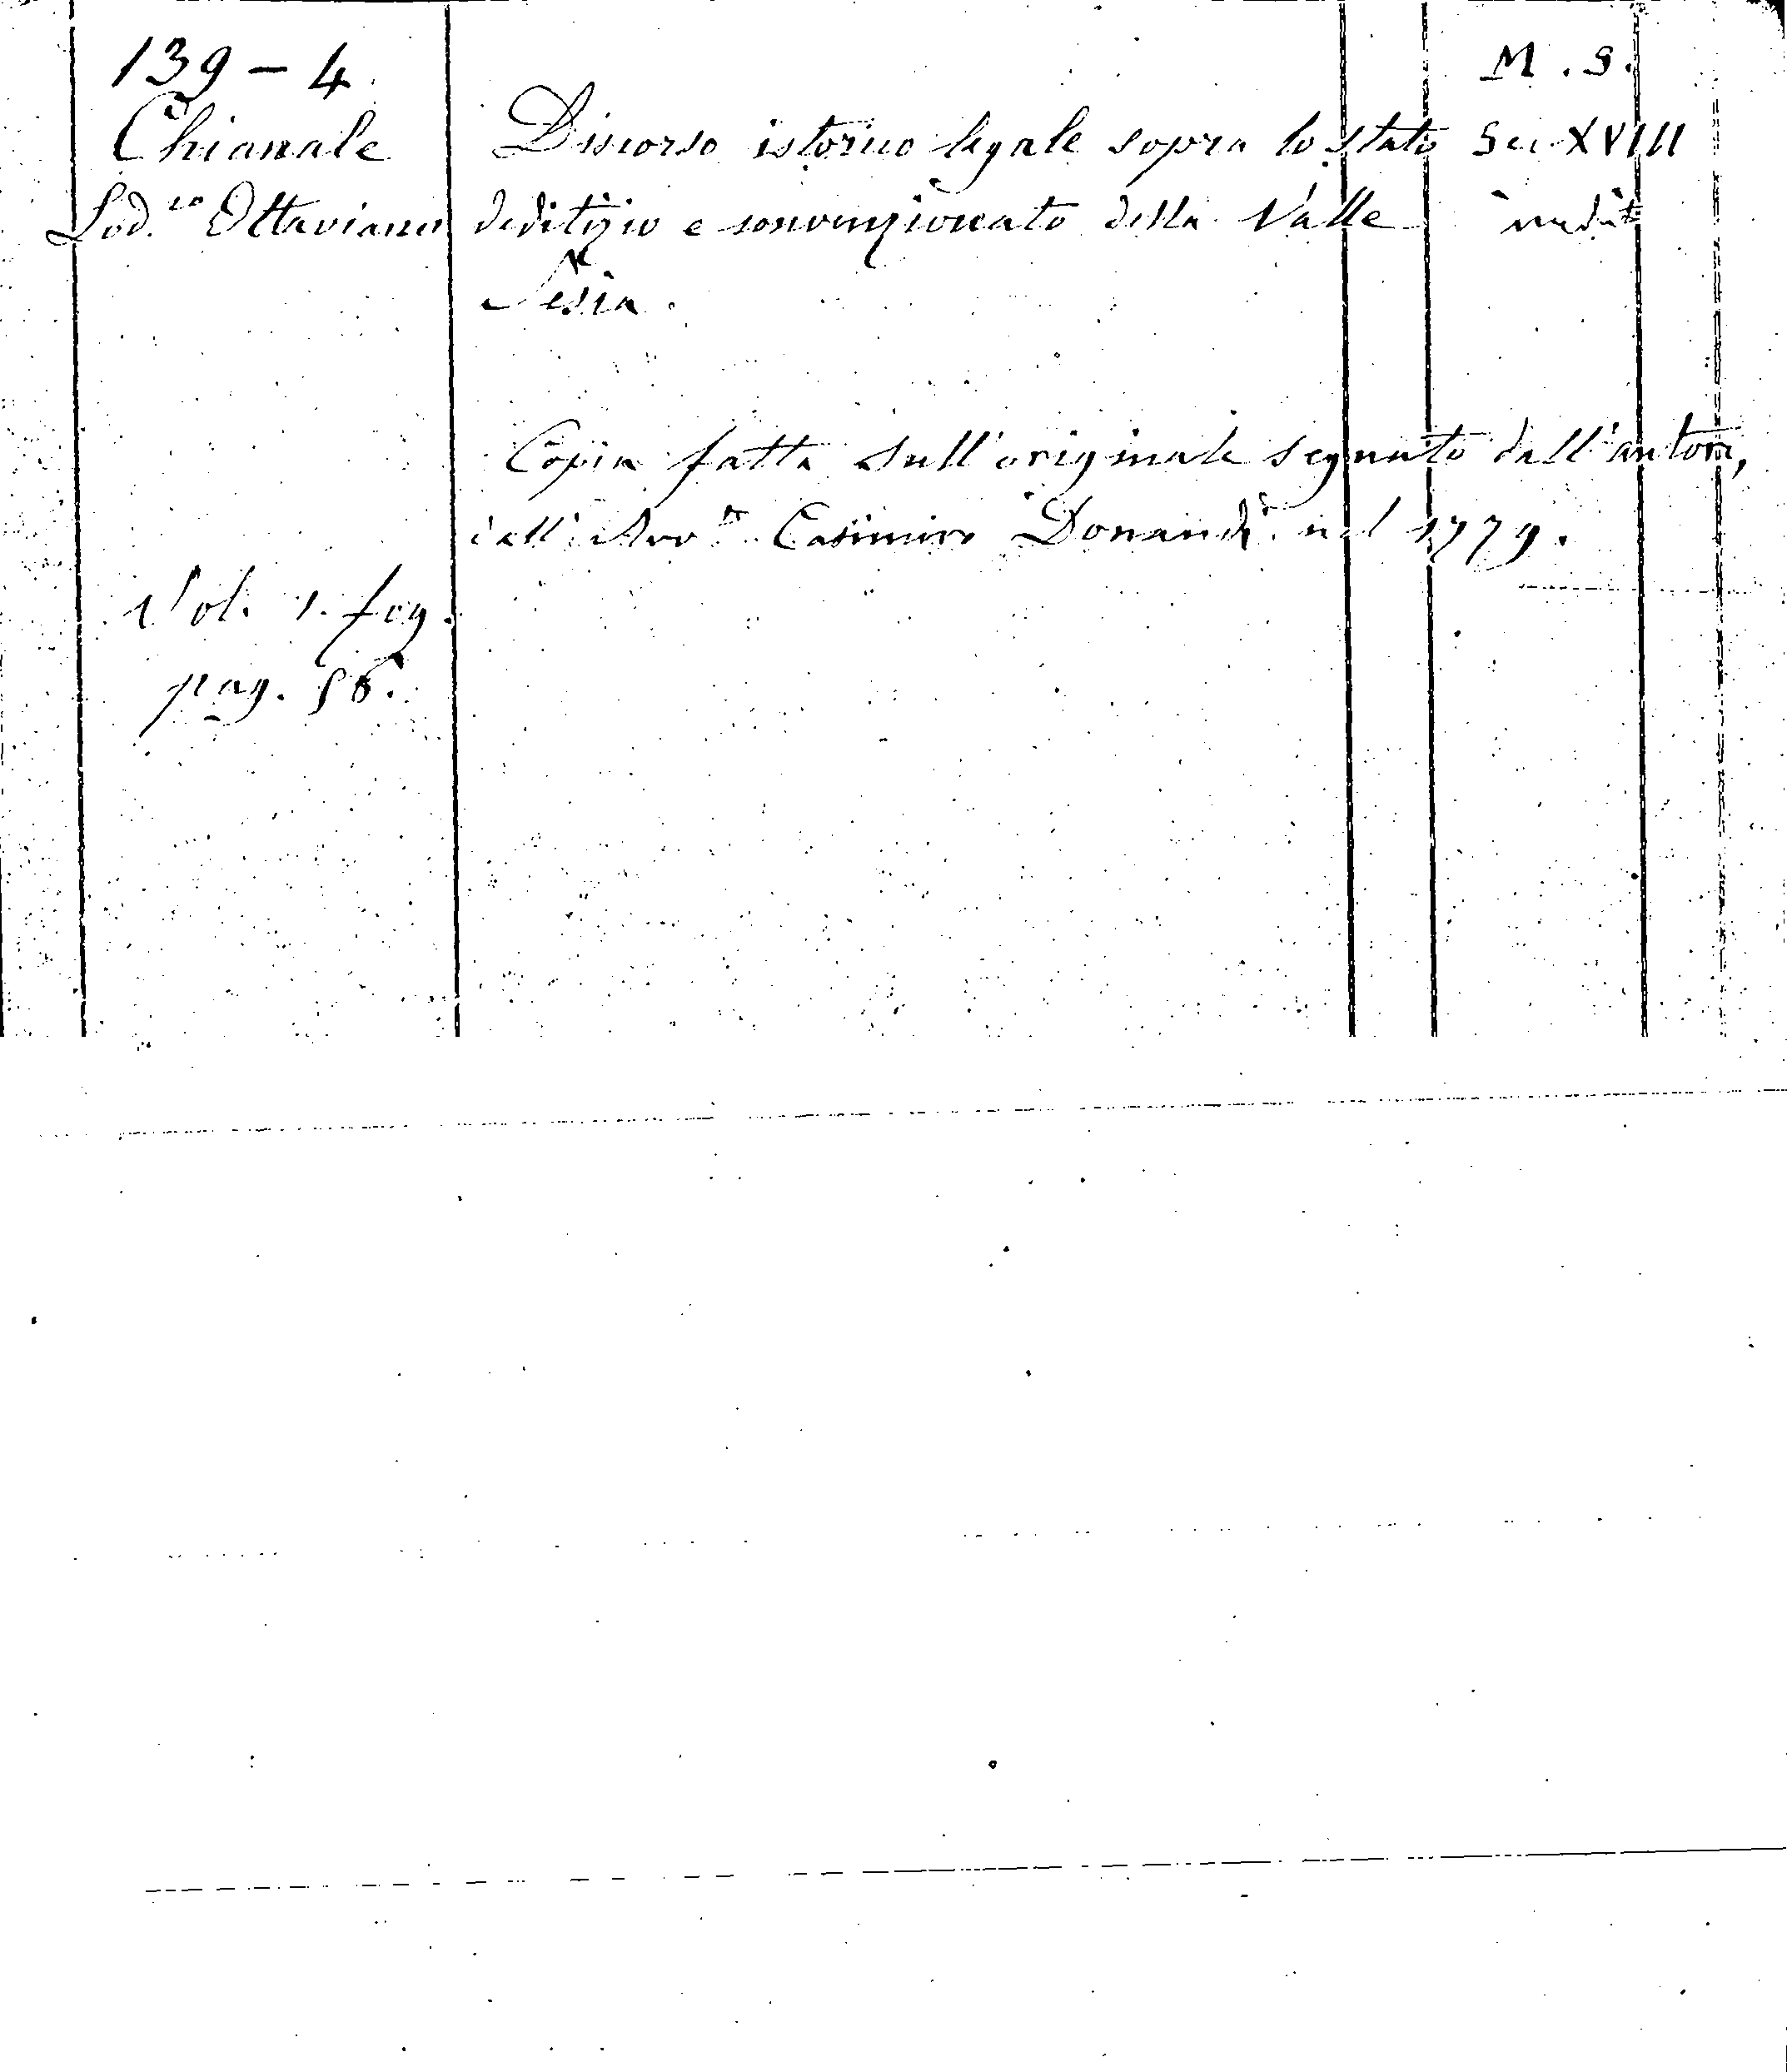 139 – 4.
M. S.
Chianale
Discorso istorico legale sopra lo stato
Sec. XVIII
Lod.co Ottaviano
deditizio e convenzionato della Valle
inedito
Sesia.
Copia fatta sull'originale segnato dall'autore,
dall'Avv.to Casimiro Donaudi nel 1779.
Vol. 1. fog.
pag. 56.